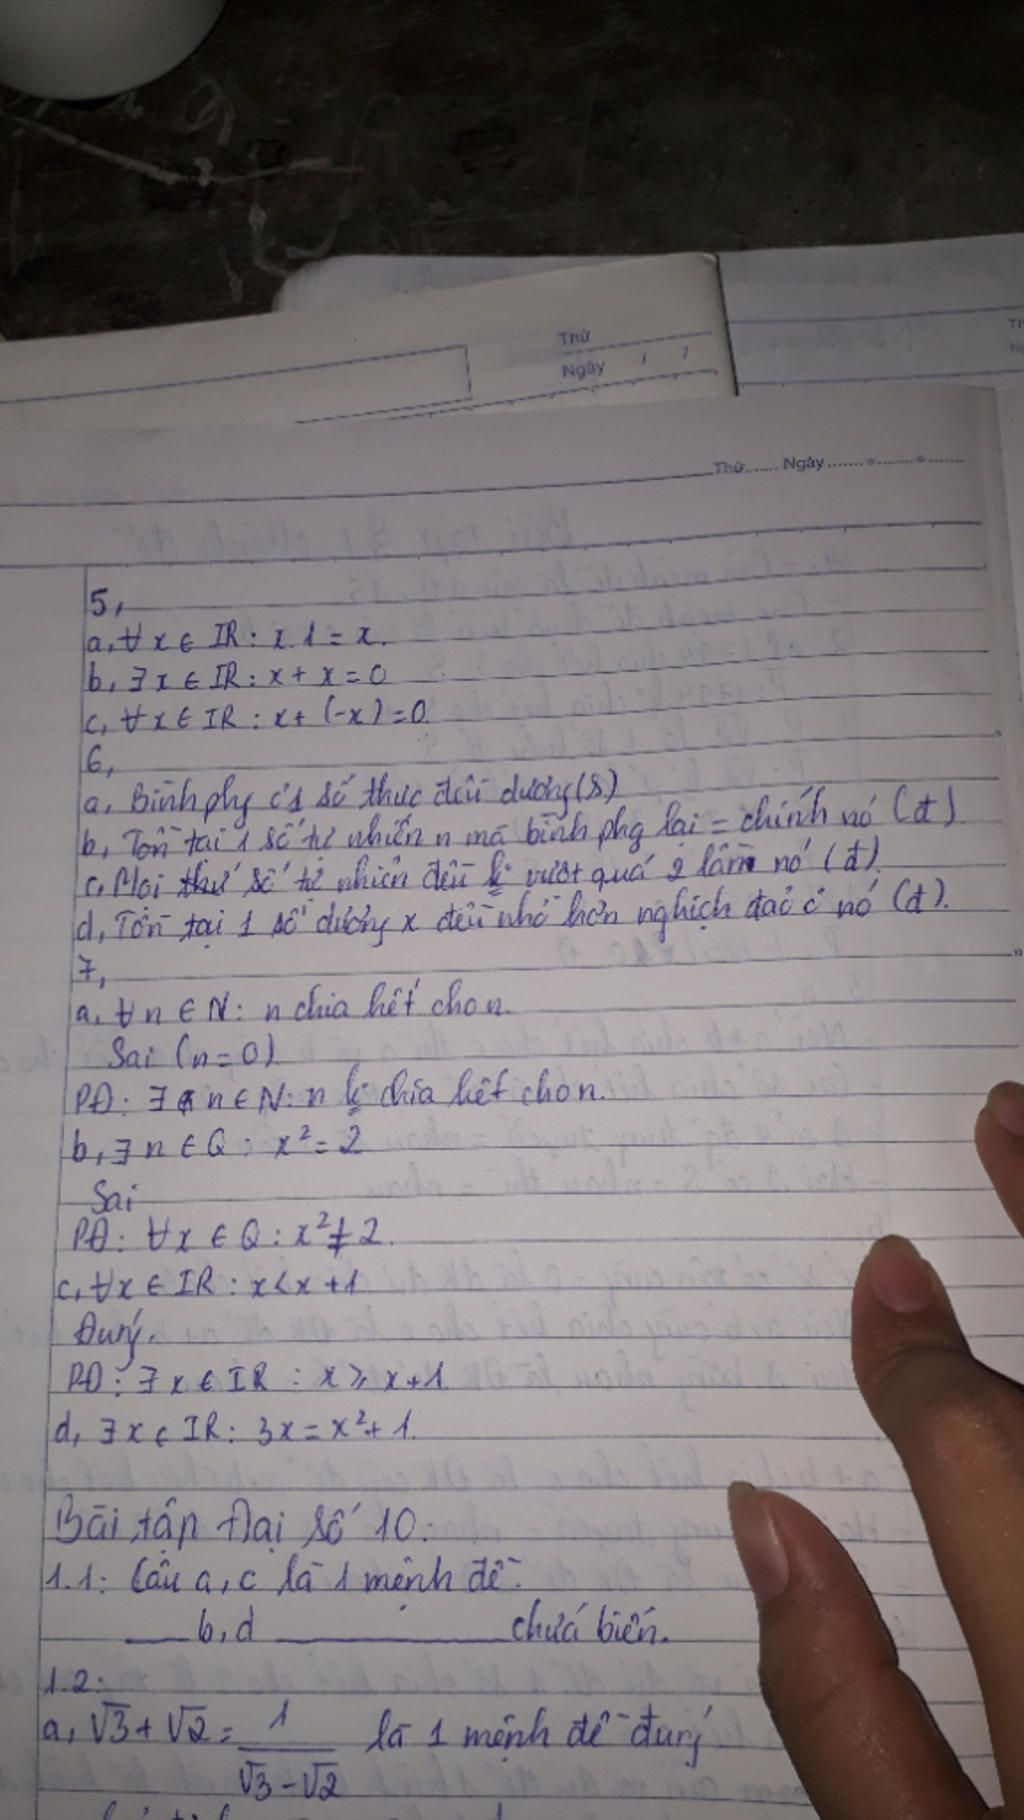 Thứ
Ngày / /
Thứ...... Ngày
5,
a, ∀x ∈ IR: x.1 = x.
b, ∃x ∈ IR: x + x = 0
c, ∀x ∈ IR: x + (-x) = 0.
6,
a, Bình phg c̉ 1 số thực đều dương (S)
b, Tồn tại 1 số tự nhiên n mà bình phg lại = chính nó (đ)
c, Mọi số tự nhiên đều k vượt quá 2 lần nó (đ).
d, Tồn tại 1 số dương x đều nhỏ hơn nghịch đảo c̉ nó (đ).
7,
a, ∀n ∈ N: n chia hết cho n.
Sai (n = 0)
PĐ: ∃ n ∈ N: n k chia hết cho n.
b, ∃ n ∈ Q: x² = 2
Sai
PĐ: ∀x ∈ Q: x² ≠ 2.
c, ∀x ∈ IR: x < x + 1
Đúng.
PĐ: ∃x ∈ IR: x ≥ x + 1.
d, ∃x ∈ IR: 3x = x² + 1.
Bài tập Đại số 10:
1.1: Câu a, c là 1 mệnh đề.
___ b, d ___ chứa biến.
1.2:
a, √3 + √2 = 1/(√3 - √2) là 1 mệnh đề đúng